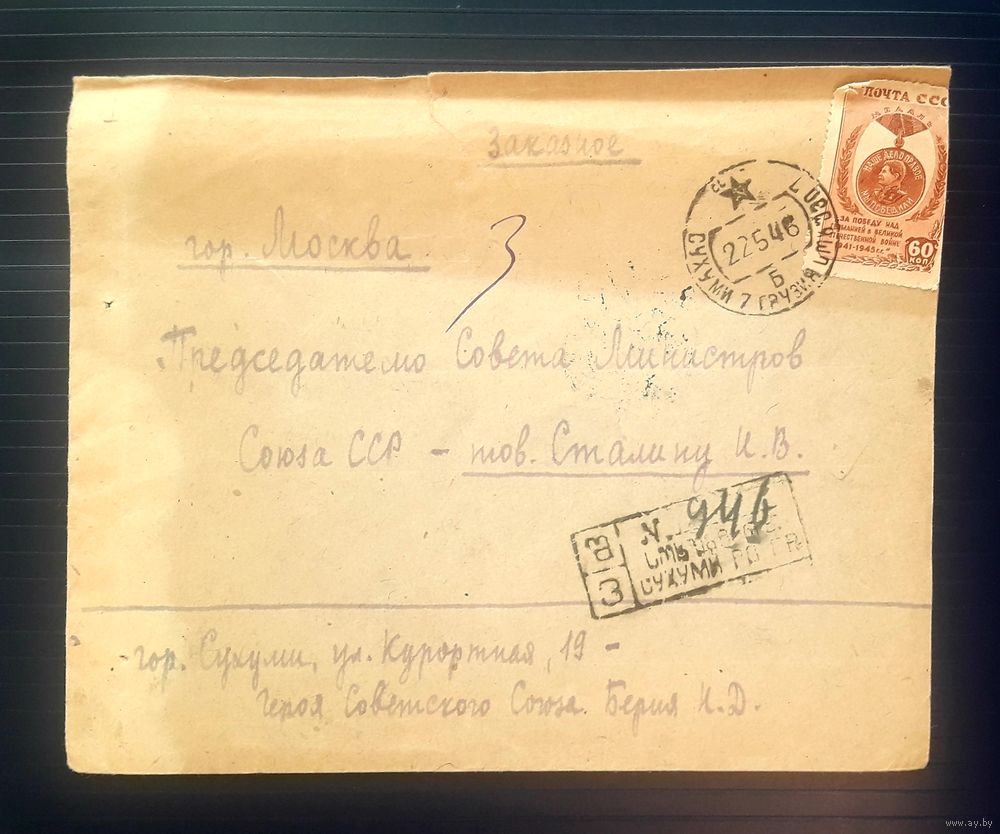 ПОЧТА СССР
МЕДАЛЬ
НАШЕ ДЕЛО ПРАВОЕ
МЫ ПОБЕДИЛИ
ЗА ПОБЕДУ НАД
В ВЕЛИКОЙ
ОТЕЧЕСТВЕННОЙ ВОЙНЕ
1941-1945гг."
60
КОП
Заказное
22546
Б
СУХУМИ 7 ГРУЗИЯ
гор. Москва
3
Председателю Совета Министров
Союза ССР - тов. Сталину И.В.
N. 946
З
СУХУМИ
гор. Сухуми, ул. Курортная, 19 -
Героя Советского Союза Берия Н.Д.
www.ay.by